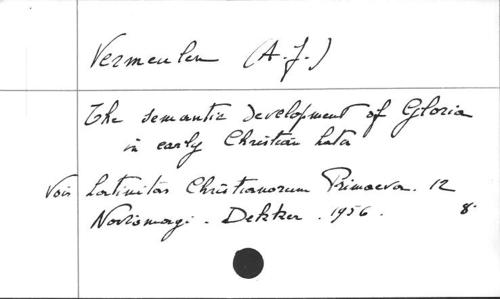 Vermeulen (A.J.)
The semantic Development of Gloria
in early Christian Latin
Voir Latinitas Christianorum Primaeva. 12
Noviomagi. Dekker. 1956. 8°